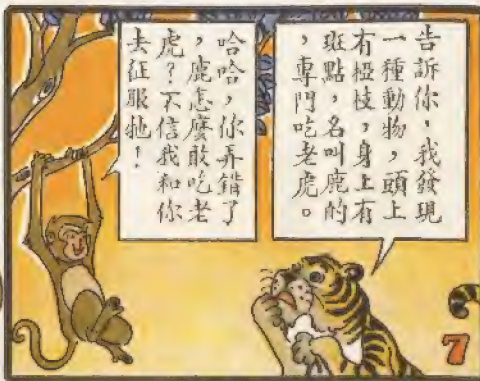 告訴你,我發現
一種動物,頭上
有椏枝,身上有
斑點,名叫鹿的
,專門吃老虎。
哈哈,你弄錯了
,鹿怎麼敢吃老
虎?不信我和你
去征服牠!
7